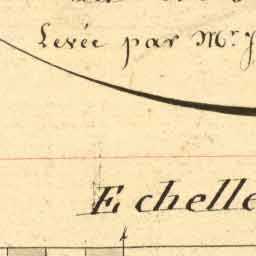 Levée par Mr.
Echelle